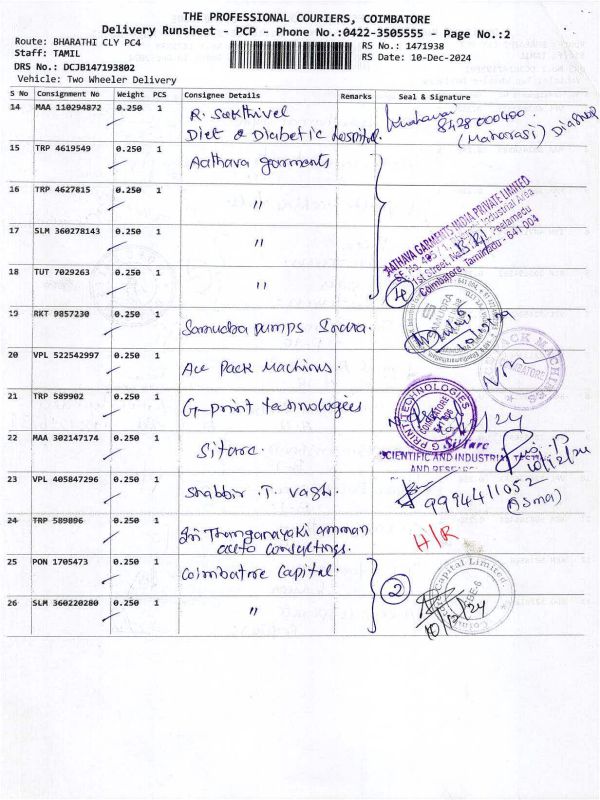 THE PROFESSIONAL COURIERS, COIMBATORE
Delivery Runsheet - PCP - Phone No.:0422-3505555 - Page No.:2
Route: BHARATHI CLY PC4 RS No.: 1471938
Staff: TAMIL RS Date: 10-Dec-2024
DRS No.: DCJB147193802
Vehicle: Two Wheeler Delivery
S No Consignment No Weight PCS Consignee Details Remarks Seal & Signature
14 MAA 110294872 0.250 1 R. Sakthivel
Diet & Diabetic hospital. 8428000400. (Maharasi)
15 TRP 4619549 0.250 1 Aathava garments
16 TRP 4627815 0.250 1 "
AATHAVA GARMENTS INDIA PRIVATE LIMITED
1st Street, Peelamedu
Coimbatore, Tamilnadu - 641 004
17 SLM 360278143 0.250 1 "
18 TUT 7029263 0.250 1 " 4
19 RKT 9857230 0.250 1 Samudra pumps
20 VPL 522542997 0.250 1 Ace Pack Machines.
21 TRP 589902 0.250 1 G-print technologies
G PRINT TECHNOLOGIES
COIMBATORE
22 MAA 302147174 0.250 1 Sitarc.
Si'Tarc
SCIENTIFIC AND INDUSTRIAL
AND RESEARCH
10/12/24
23 VPL 405847296 0.250 1 Shabbir .T. Vagh. 9994411052
(Asma)
24 TRP 589896 0.250 1 Sri Thanganayaki amman
auto consultings. H/R
25 PON 1705473 0.250 1 Coimbatore Capital.
26 SLM 360220280 0.250 1 " 2
Capital Limited
10/12/24